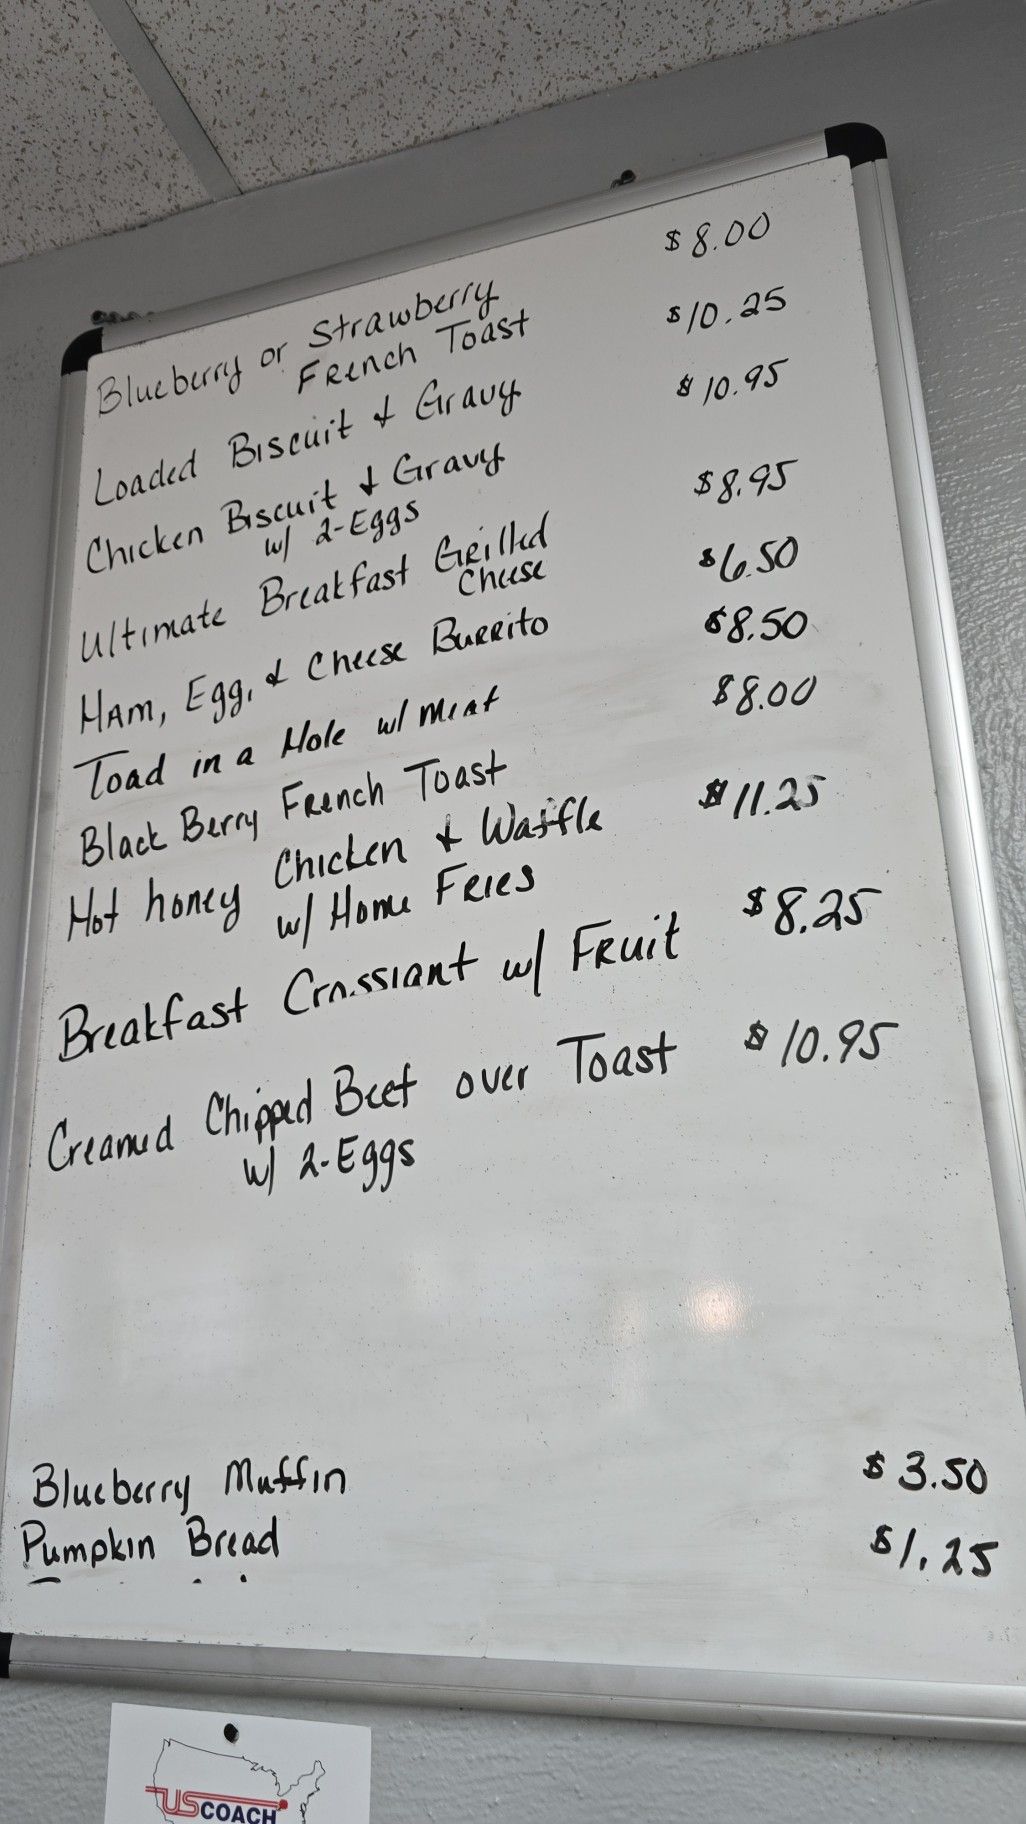 Blueberry or Strawberry $8.00
French Toast
Loaded Biscuit & Gravy $10.25
Chicken Biscuit & Gravy $10.95
w/ 2-Eggs
Ultimate Breakfast Grilled $8.95
Cheese
Ham, Egg, & Cheese Burrito $6.50
Toad in a Hole w/ Meat $8.50
Black Berry French Toast $8.00
Hot honey Chicken & Waffle $11.25
w/ Home Fries
Breakfast Crossiant w/ Fruit $8.25
Creamed Chipped Beef over Toast $10.95
w/ 2-Eggs
Blueberry Muffin $3.50
Pumpkin Bread $1.25
US COACH